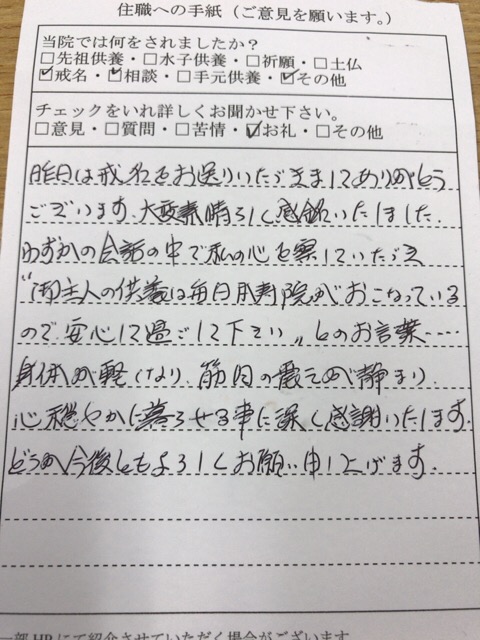 住職への手紙（ご意見を願います。）
当院では何をされましたか？
□先祖供養・□水子供養・□祈願・□土仏
☑戒名・☑相談・□手元供養・☑その他
チェックをいれ詳しくお聞かせ下さい。
□意見・□質問・□苦情・☑お礼・□その他
昨日は戒名をお送りいただきましてありがとう
ございます。大変素晴らしく感銘いたしました。
わずかの会話の中で私の心を察していただき
"御主人の供養は毎日 寿院がおこなっている
ので安心して過ごして下さい"とのお言葉……
身体が軽くなり、筋肉の震えが静まり、
心穏やかに暮らせる事に深く感謝いたします。
どうか今後ともよろしくお願い申し上げます。
一部HPにて紹介させていただく場合がございます